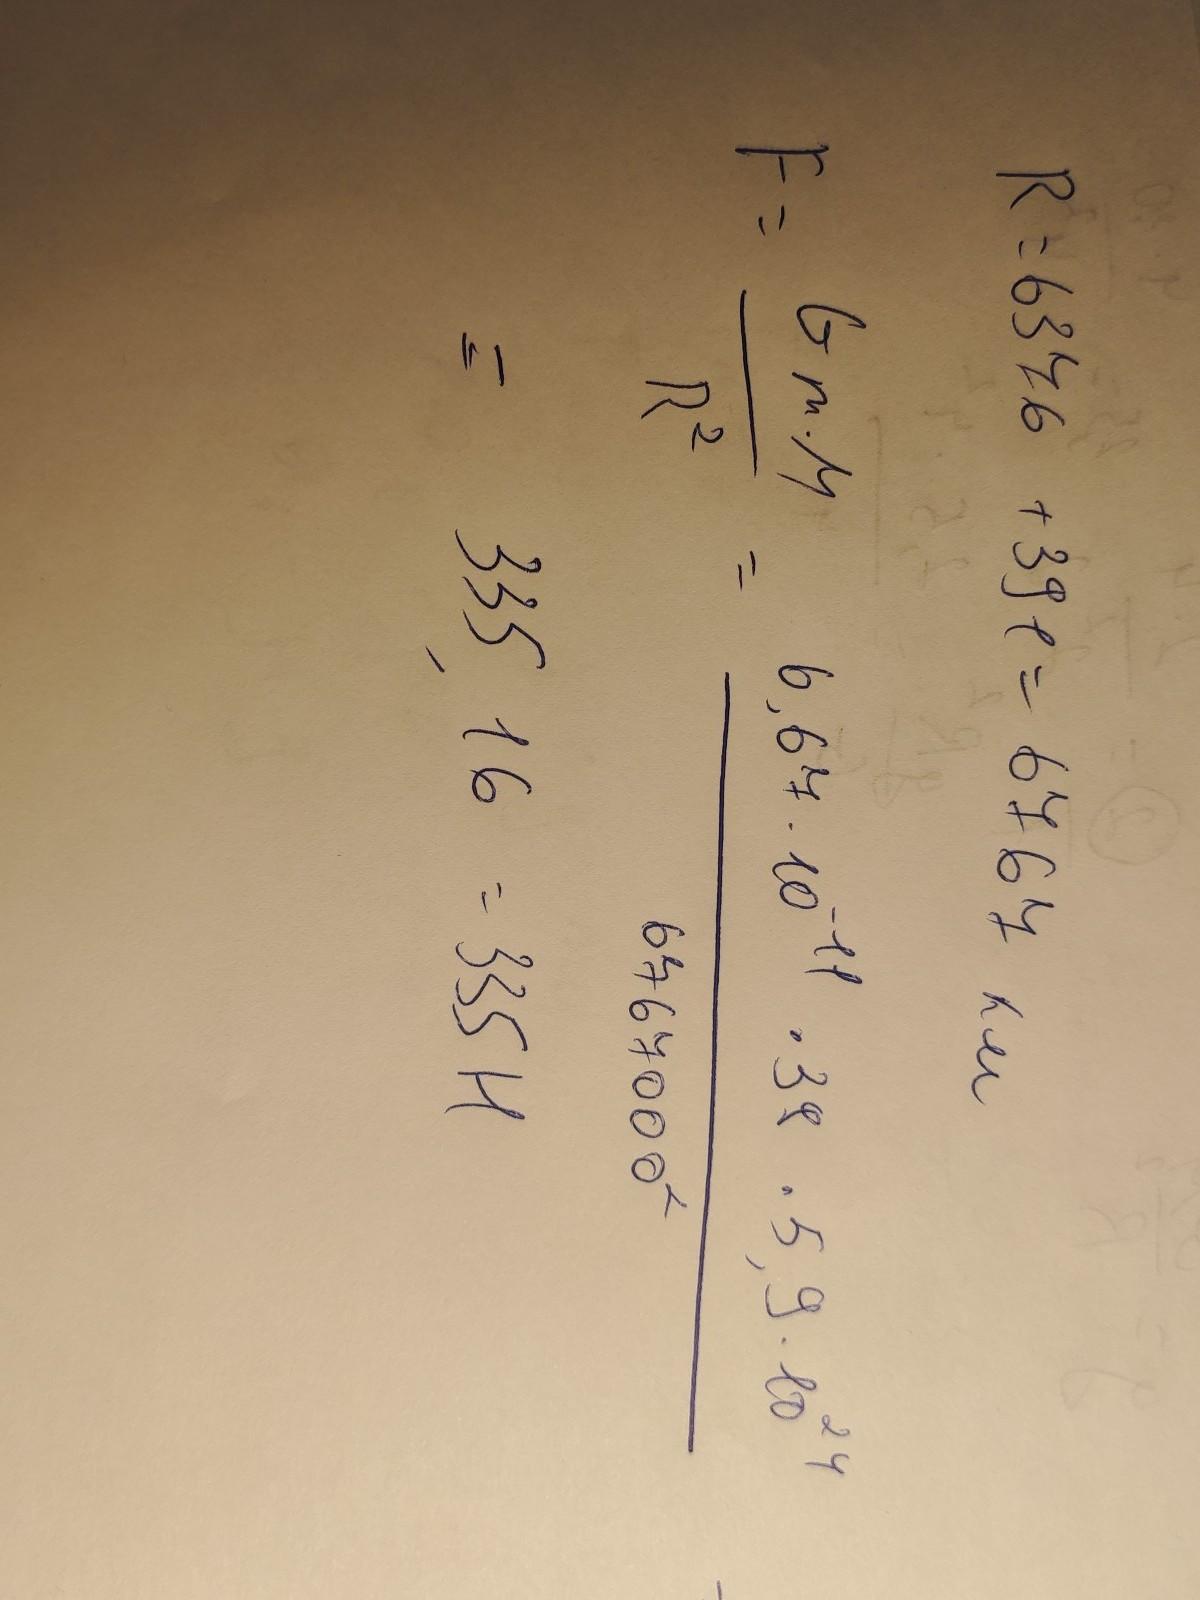 R = 6376 + 391 = 6767 км
F = G m · M / R² = 6,67 · 10⁻¹¹ · 39 · 5,9 · 10²⁴ / 6767000²
= 335,16 = 335 Н